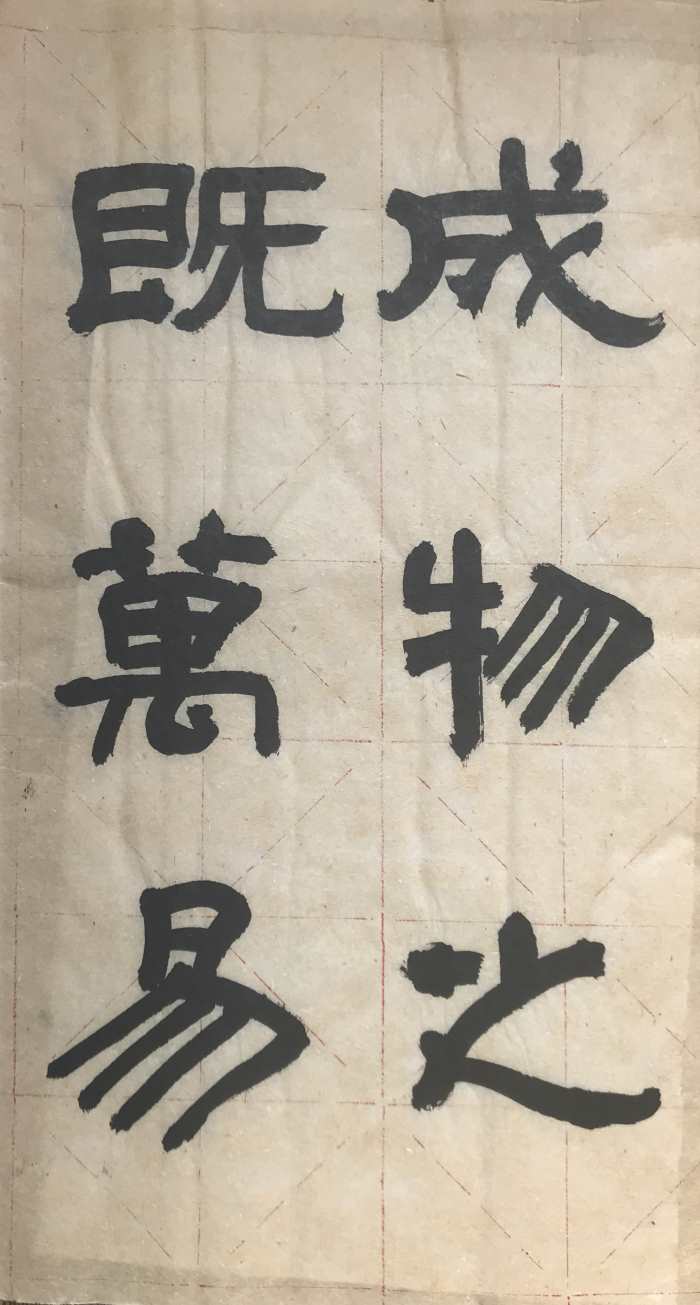 成物之
既萬易